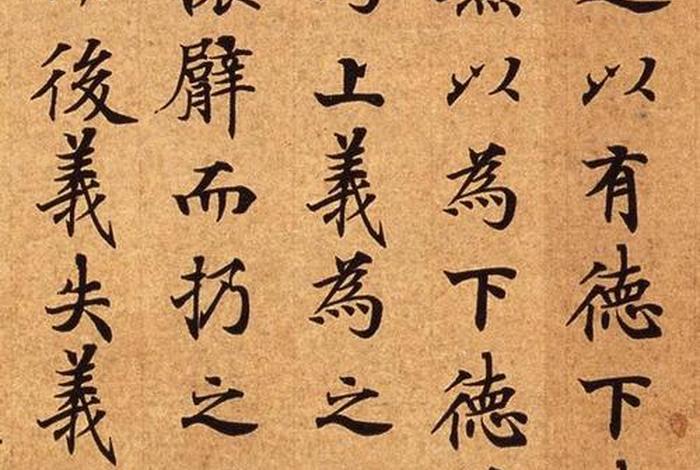 以有德下
無以為下德
上義為之
臂而扔之
後義失義